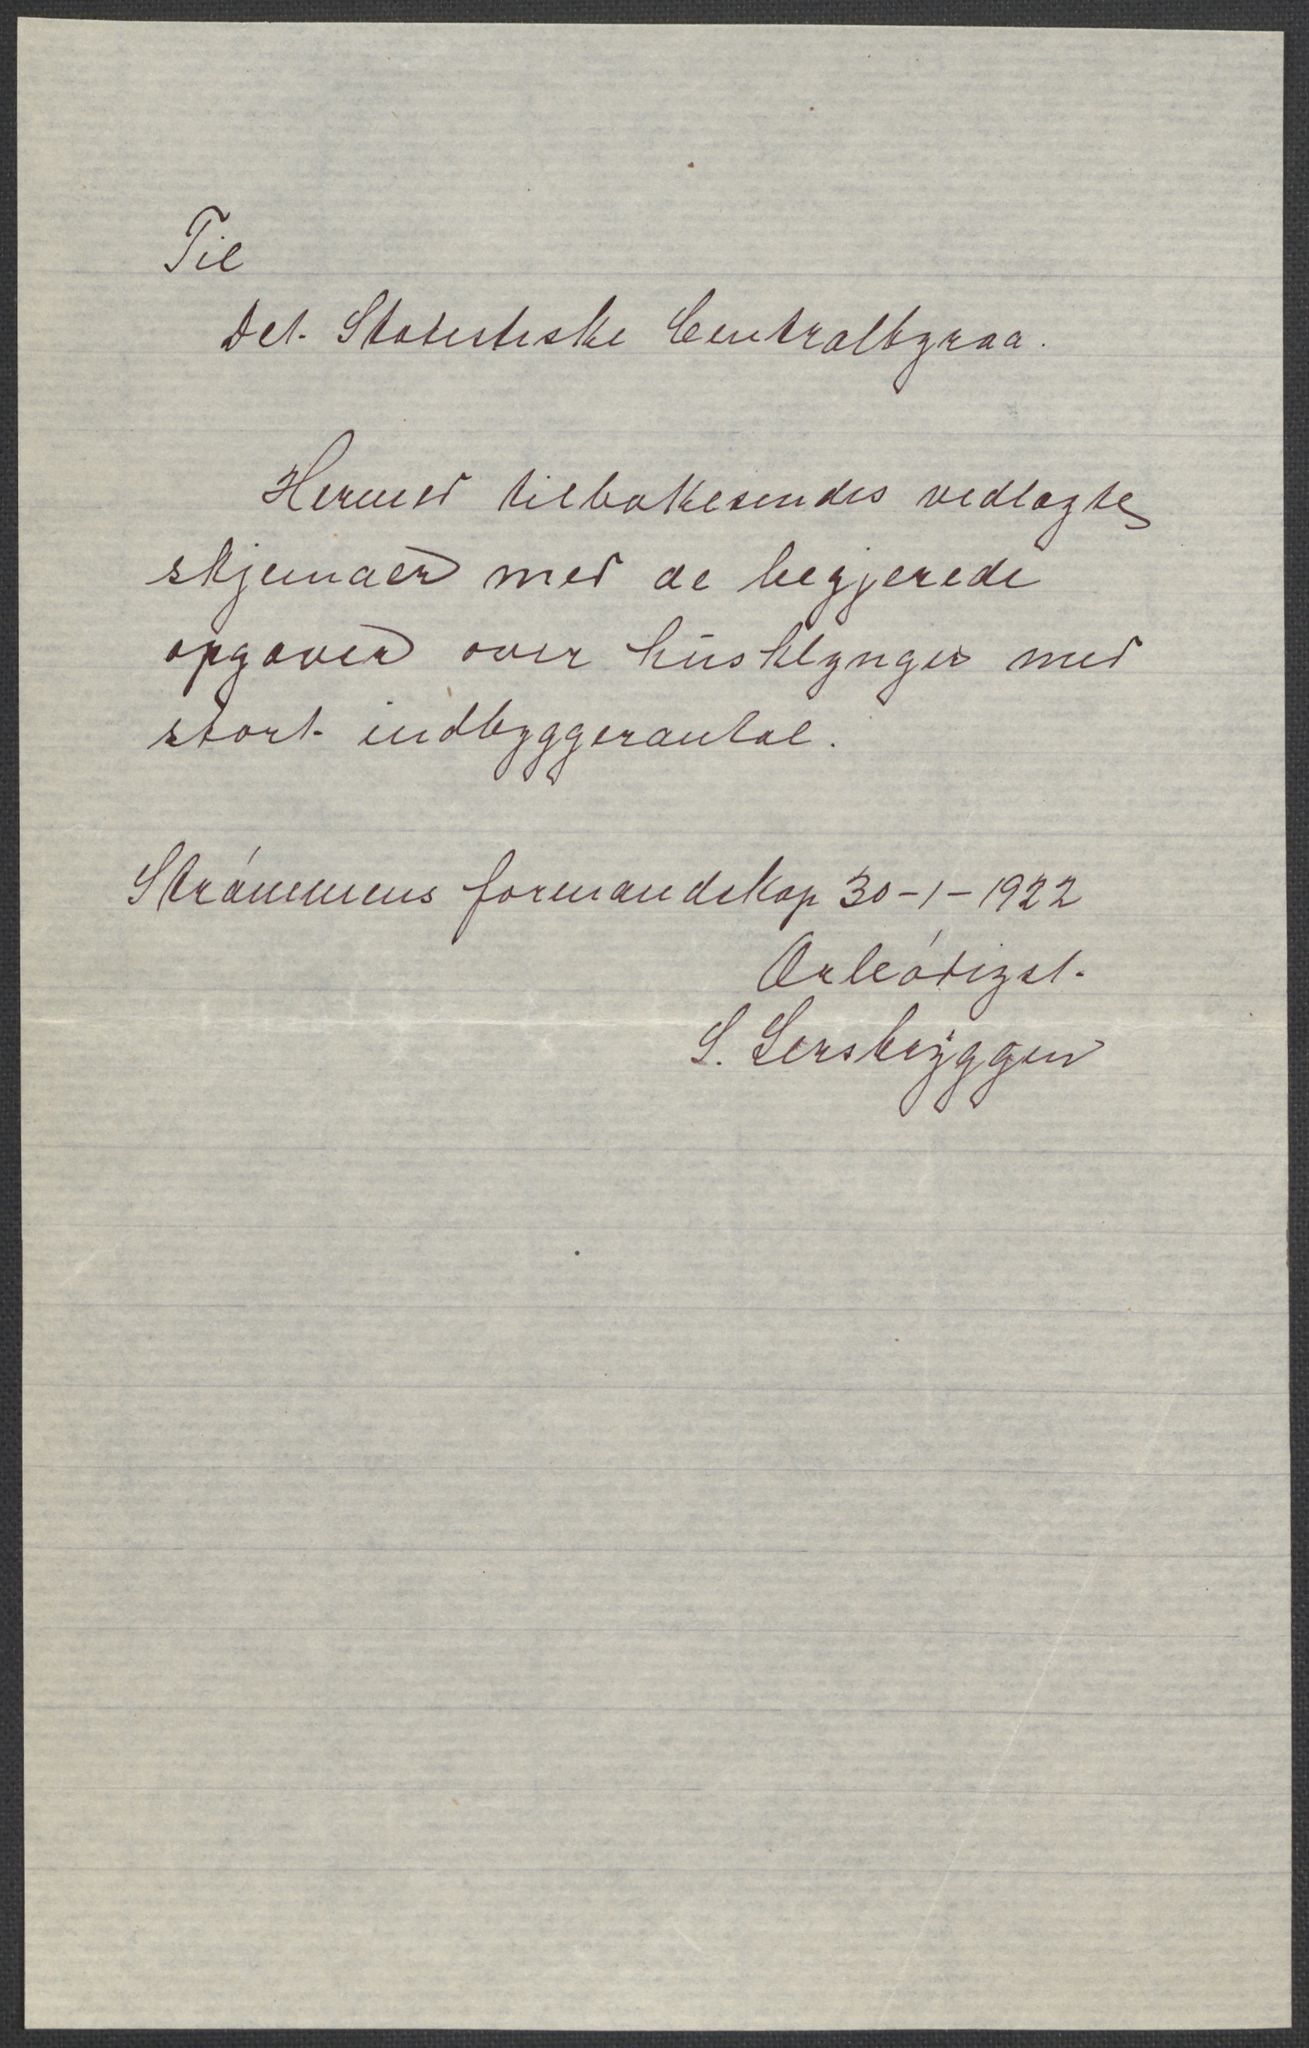 Til
Det Statistiske Centralbyraa.
Hermed tilbakesendes vedlagte
skjemaer med de begjerede
opgaver over husklynger med
stort indbyggerantal.
Strømmens formandskap 30-1-1922
Ærbødigst.
S.